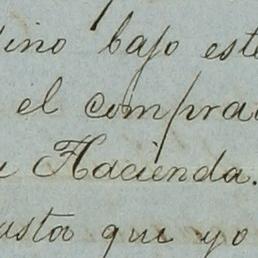 ino bajo este
el compra
Hacienda.
asta que yo